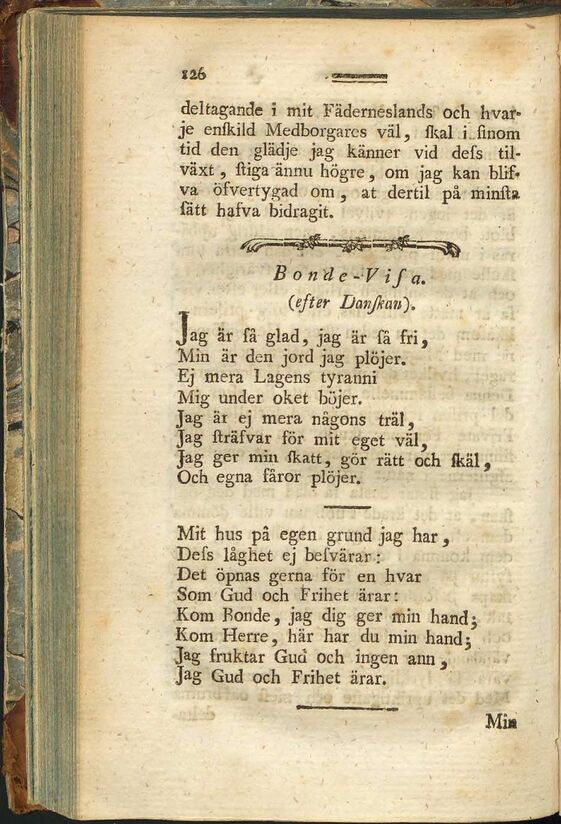 126
deltagande i mit Fäderneslands och hvar-
je enſkild Medborgares väl, ſkal i ſinom
tid den glädje jag känner vid deſs til-
växt, ſtiga ännu högre, om jag kan blif-
va öfvertygad om, at dertil på minſta
ſätt hafva bidragit.
Bonde-Viſa.
(efter Danſkan).
Jag är ſå glad, jag är ſå fri,
Min är den jord jag plöjer.
Ej mera Lagens tyranni
Mig under oket böjer.
Jag är ej mera någons träl,
Jag ſträfvar för mit eget väl,
Jag ger min ſkatt, gör rätt och ſkäl,
Och egna fåror plöjer.
Mit hus på egen grund jag har,
Deſs låghet ej beſvärar:
Det öpnas gerna för en hvar
Som Gud och Frihet ärar:
Kom Bonde, jag dig ger min hand;
Kom Herre, här har du min hand;
Jag fruktar Gud och ingen ann,
Jag Gud och Frihet ärar.
Min